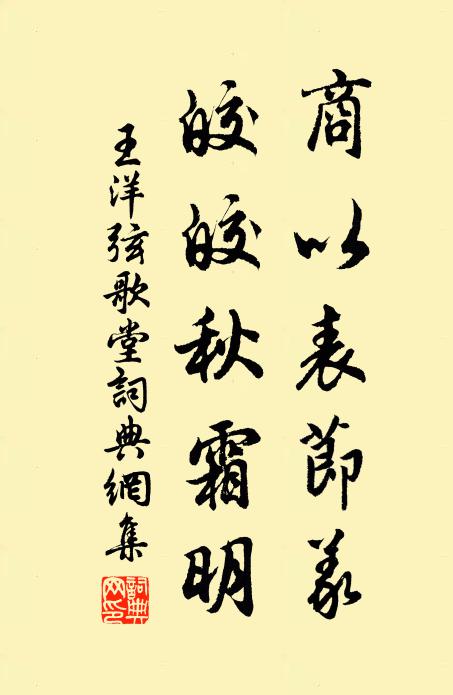 商以表節義
皎皎秋霜明
王洋弦歌堂詞典網集
詞典網印